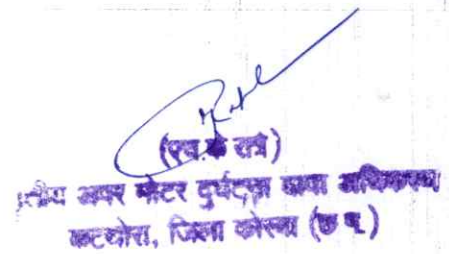 (एच.के रात्रे)
तीय अपर मोटर दुर्घटना दावा अधिकरण
कटघोरा, जिला कोरबा (छ.ग.)